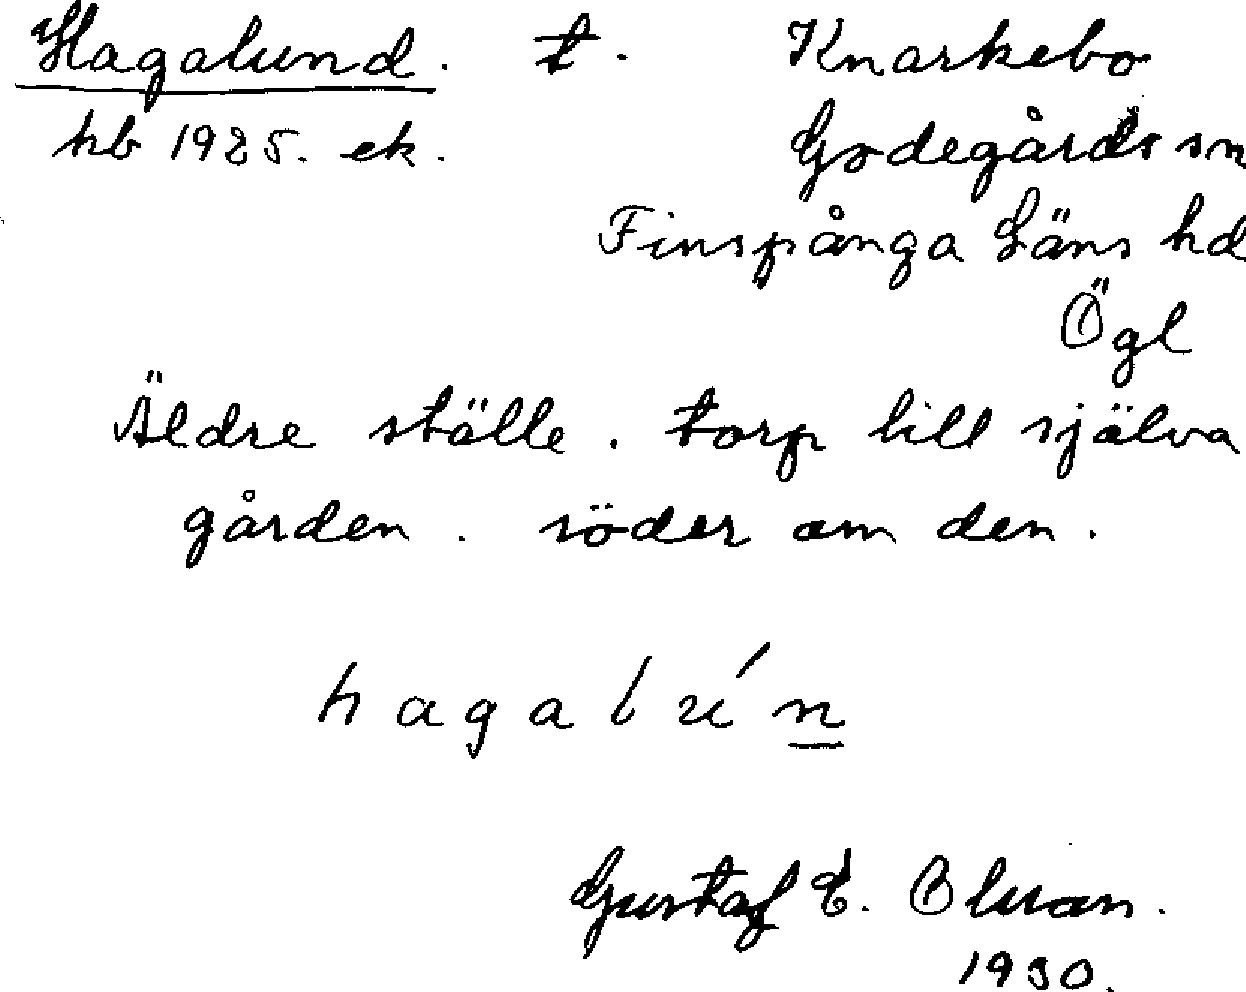 Hagalund. t. Knarkebo
hb 1925. ek. Godegårds sn
Finspånga Läns hd
Ögl
Äldre ställe. torp till själva
gården. söder om den.
hagalún
Gustaf E. Olson.
1930.